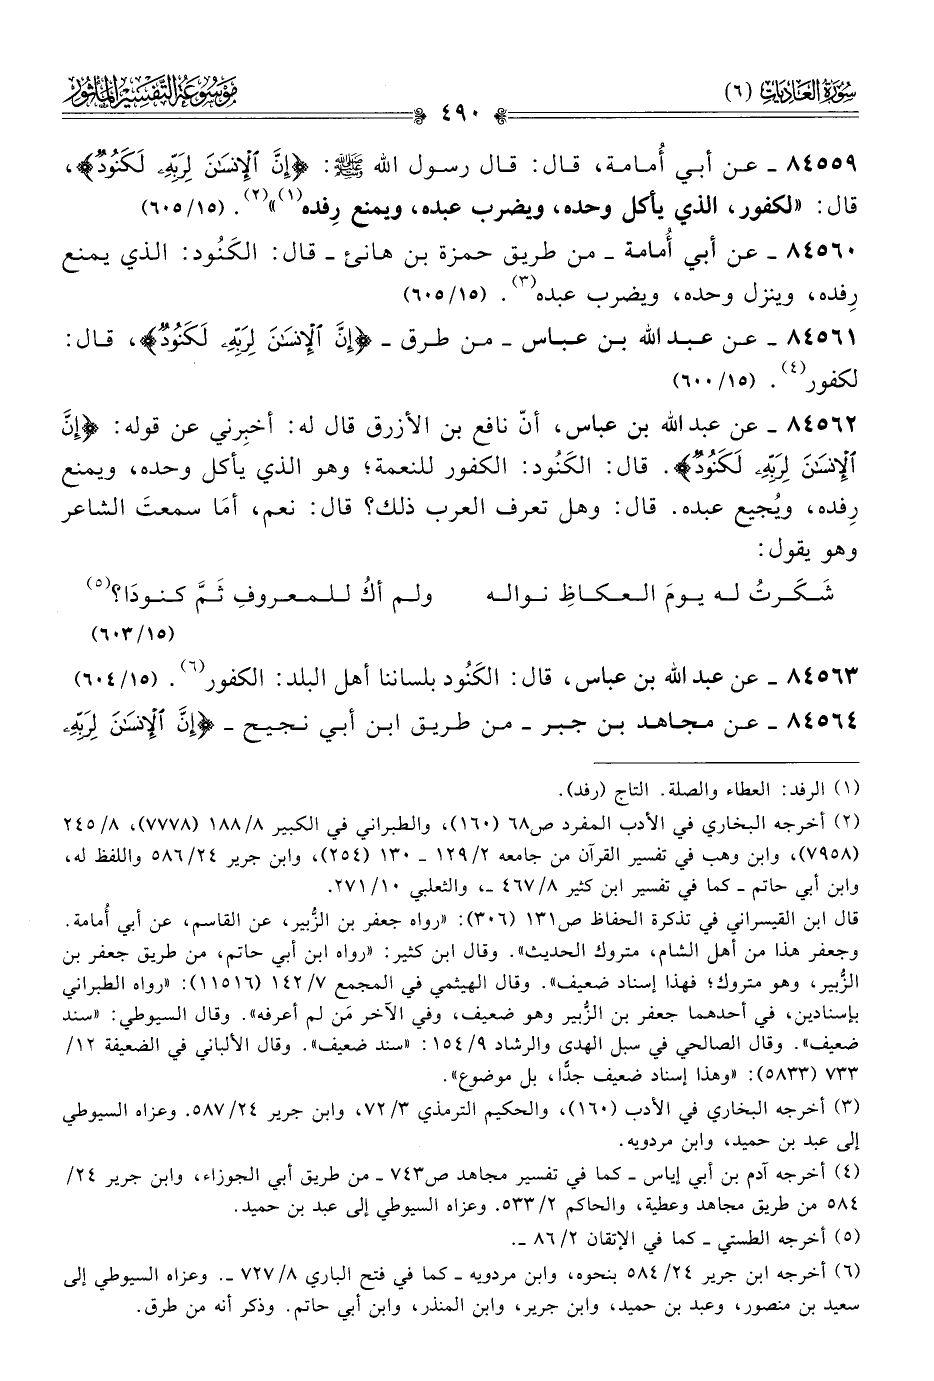 سُورَةُ العَادِيَاتِ (٦)
مَوْسُوعَة التَّفْسِيرِ المَأْثُور
٤٩٠
٨٤٥٥٩ ـ عن أبي أُمامة، قال: قال رسول الله ﷺ: ﴿إِنَّ ٱلْإِنسَٰنَ لِرَبِّهِۦ لَكَنُودٌ﴾،
قال: «لكفور، الذي يأكل وحده، ويضرب عبده، ويمنع رِفده(١)»(٢). (١٥/ ٦٠٥)
٨٤٥٦٠ ـ عن أبي أُمامة ـ من طريق حمزة بن هانئ ـ قال: الكَنُود: الذي يمنع
رِفده، وينزل وحده، ويضرب عبده(٣). (١٥/ ٦٠٥)
٨٤٥٦١ ـ عن عبد الله بن عباس ـ من طرق ـ ﴿إِنَّ ٱلْإِنسَٰنَ لِرَبِّهِۦ لَكَنُودٌ﴾، قال:
لكفور(٤). (١٥/ ٦٠٠)
٨٤٥٦٢ ـ عن عبد الله بن عباس، أنّ نافع بن الأزرق قال له: أخبِرني عن قوله: ﴿إِنَّ
ٱلْإِنسَٰنَ لِرَبِّهِۦ لَكَنُودٌ﴾. قال: الكَنُود: الكفور للنعمة؛ وهو الذي يأكل وحده، ويمنع
رِفده، ويُجيع عبده. قال: وهل تعرف العرب ذلك؟ قال: نعم، أمَا سمعتَ الشاعر
وهو يقول:
شَكَرتُ له يومَ العكاظِ نواله ولم أكُ للمعروفِ ثَمَّ كنودَا؟(٥)
(١٥/ ٦٠٣)
٨٤٥٦٣ ـ عن عبد الله بن عباس، قال: الكَنُود بلساننا أهل البلد: الكفور(٦). (١٥/ ٦٠٤)
٨٤٥٦٤ ـ عن مجاهد بن جبر ـ من طريق ابن أبي نجيح ـ ﴿إِنَّ ٱلْإِنسَٰنَ لِرَبِّهِۦ
(١) الرفد: العطاء والصلة. التاج (رفد).
(٢) أخرجه البخاري في الأدب المفرد ص٦٨ (١٦٠)، والطبراني في الكبير ٨/ ١٨٨ (٧٧٧٨)، ٨/ ٢٤٥
(٧٩٥٨)، وابن وهب في تفسير القرآن من جامعه ٢/ ١٢٩ ـ ١٣٠ (٢٥٤)، وابن جرير ٢٤/ ٥٨٦ واللفظ له،
وابن أبي حاتم ـ كما في تفسير ابن كثير ٨/ ٤٦٧ ـ، والثعلبي ١٠/ ٢٧١.
قال ابن القيسراني في تذكرة الحفاظ ص١٣١ (٣٠٦): «رواه جعفر بن الزُّبير، عن القاسم، عن أبي أُمامة.
وجعفر هذا من أهل الشام، متروك الحديث». وقال ابن كثير: «رواه ابن أبي حاتم، من طريق جعفر بن
الزُّبير، وهو متروك؛ فهذا إسناد ضعيف». وقال الهيثمي في المجمع ٧/ ١٤٢ (١١٥١٦): «رواه الطبراني
بإسنادين، في أحدهما جعفر بن الزُّبير وهو ضعيف، وفي الآخر مَن لم أعرفه». وقال السيوطي: «سند
ضعيف». وقال الصالحي في سبل الهدى والرشاد ٩/ ١٥٤: «سند ضعيف». وقال الألباني في الضعيفة ١٢/
٧٣٣ (٥٨٣٣): «وهذا إسناد ضعيف جدًّا، بل موضوع».
(٣) أخرجه البخاري في الأدب (١٦٠)، والحكيم الترمذي ٣/ ٧٢، وابن جرير ٢٤/ ٥٨٧. وعزاه السيوطي
إلى عبد بن حميد، وابن مردويه.
(٤) أخرجه آدم بن أبي إياس ـ كما في تفسير مجاهد ص٧٤٣ ـ من طريق أبي الجوزاء، وابن جرير ٢٤/
٥٨٤ من طريق مجاهد وعطية، والحاكم ٢/ ٥٣٣. وعزاه السيوطي إلى عبد بن حميد.
(٥) أخرجه الطستي ـ كما في الإتقان ٢/ ٨٦ ـ.
(٦) أخرجه ابن جرير ٢٤/ ٥٨٤ بنحوه، وابن مردويه ـ كما في فتح الباري ٨/ ٧٢٧ ـ. وعزاه السيوطي إلى
سعيد بن منصور، وعبد بن حميد، وابن جرير، وابن المنذر، وابن أبي حاتم. وذكر أنه من طرق.